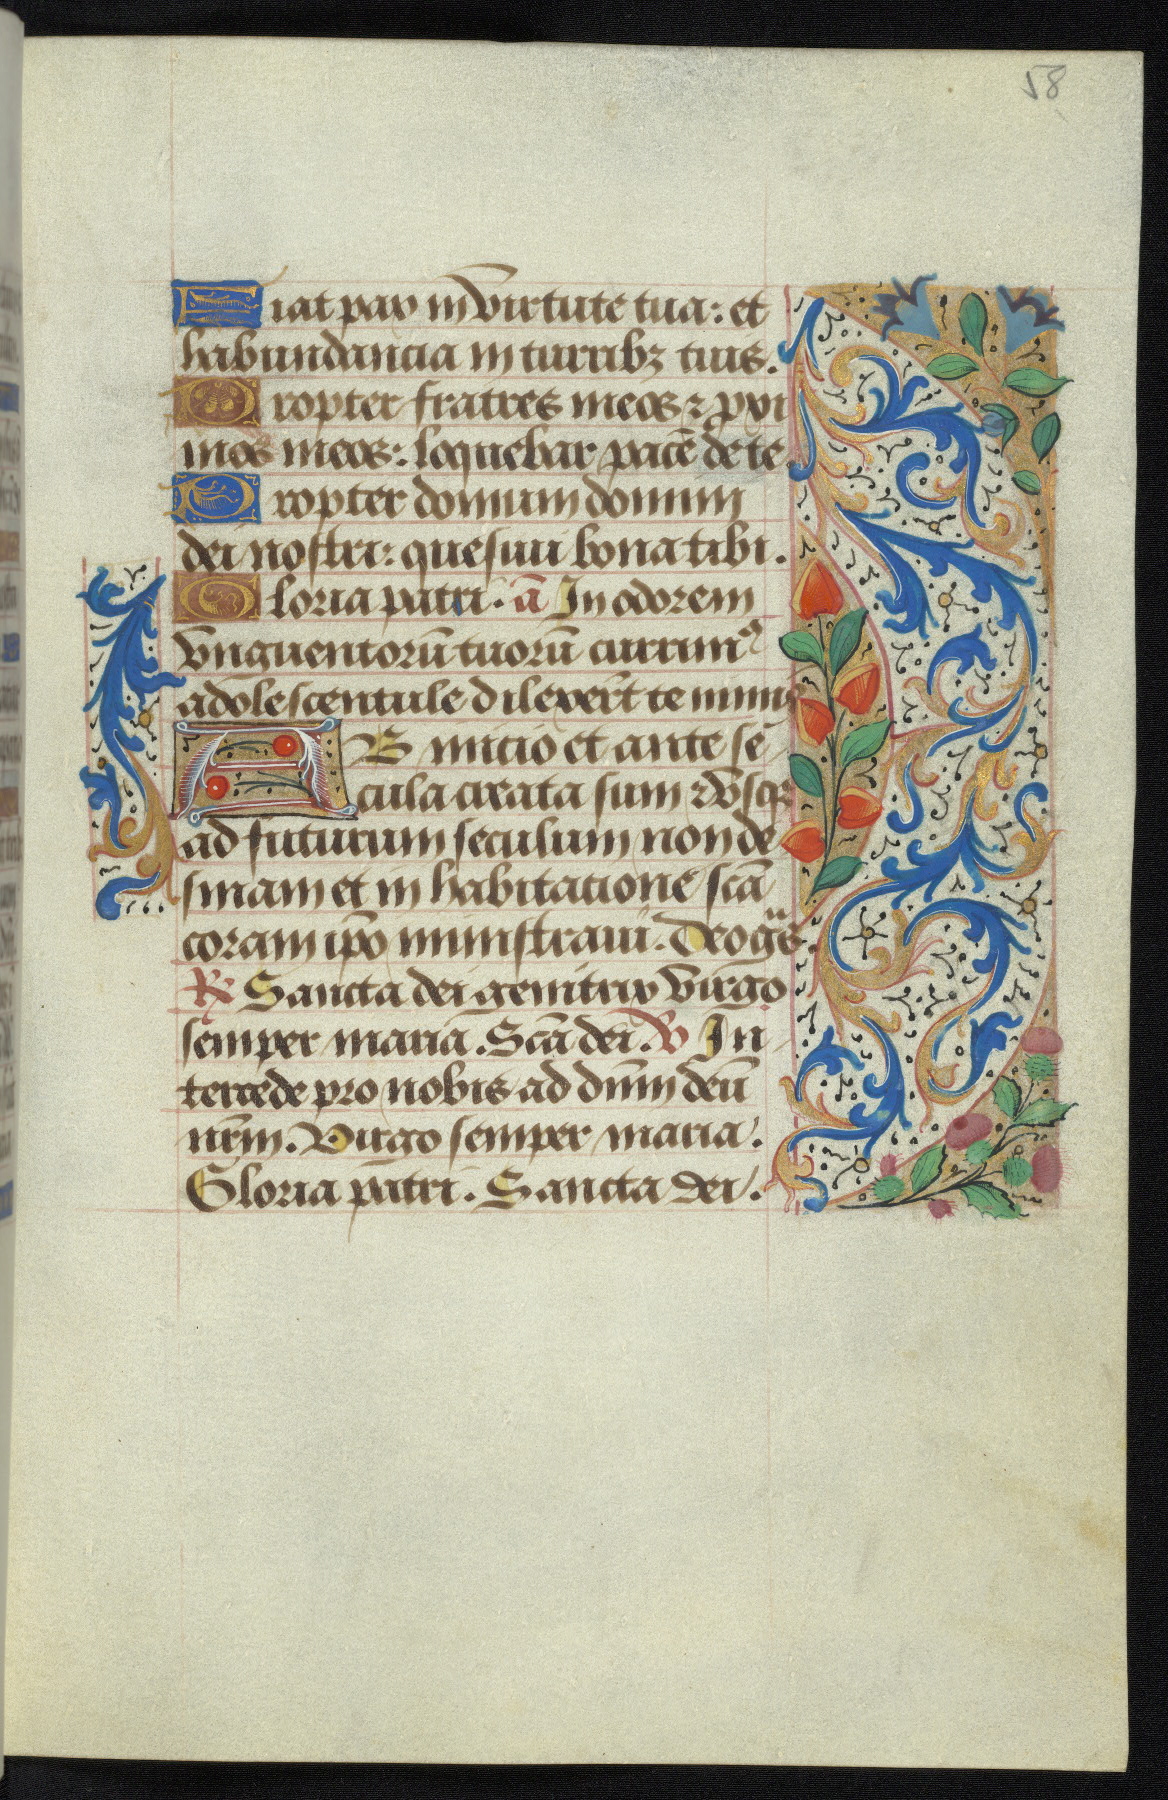 58
Fiat pax in virtute tua: et
habundancia in turribꝫ tuis.
Propter fratres meos ⁊ pxi
mos meos: loquebar pacē de te
Propter domum domini
dei nostri: quesiui bona tibi.
Gloria patri. a͞ In odorem
vnguentorū tuorū currimꝰ
adolescentule dilexer̄t te nimis
AB inicio et ante se
cula creata sum ⁊ vsqꝫ
ad futurum seculum non de
sinam et in habitatione scā
coram ip̄o ministraui. Deo grās
℟ Sancta dei genitrix virgo
semper maria. Scā dei. ℣ In
tercede pro nobis ad dn̄m deū
nr̄m. Virgo semper maria.
Gloria pātri. Sancta dei.